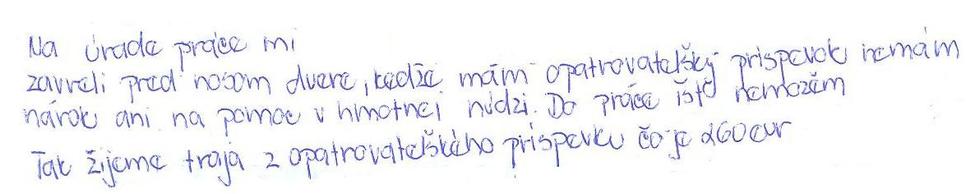 Na úrade práce mi
zavreli pred nosom dvere, kedže mám opatrovatelšký príspevok nemám
nárok ani na pomoc v hmotnei núdzi. Do práce ísť nemozěm
Tak žijeme traja z opatrovatelškého príspevku čo je 260 eur